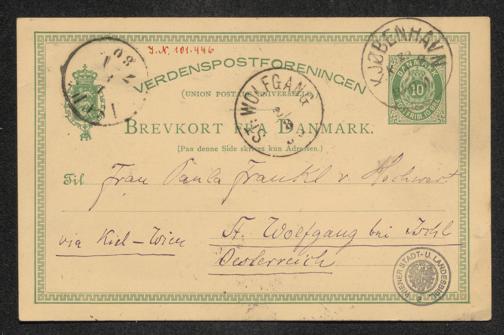 I.N. 101.446
VERDENSPOSTFORENINGEN
(UNION POSTALE UNIVERSELLE)
KJØBENHAVN
DANMARK
10
ST. WOLFGANG
BREVKORT FRA DANMARK.
[Paa denne Side skrives kun Adressen.]
Til Frau Paula Frankl v. Hochwart
St. Wolfgang bei Ischl
via Kiel-Wien
Oesterreich
WIENER STADT- U. LANDESBIBL